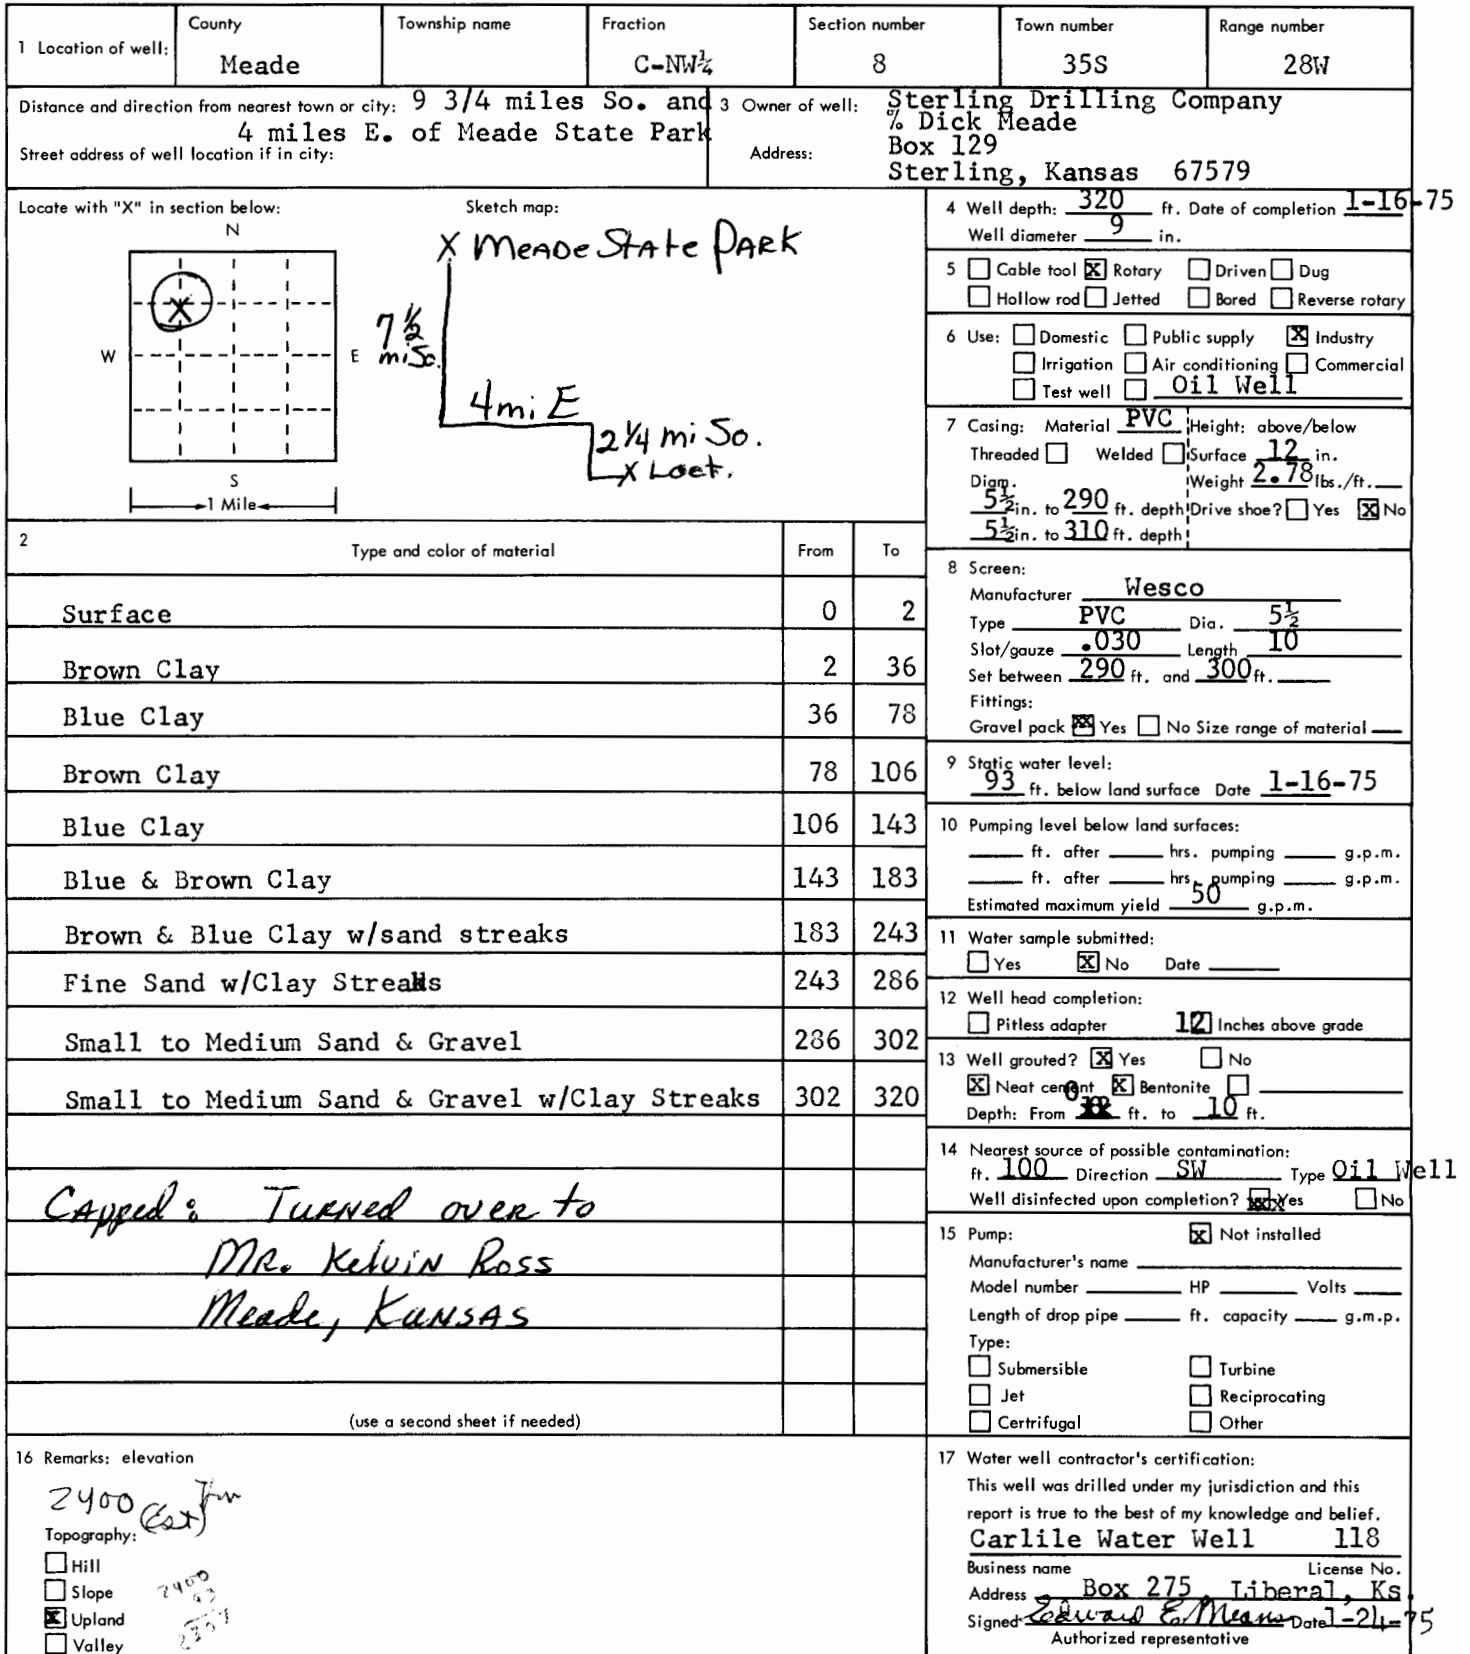 1 Location of well: County Township name Fraction Section number Town number Range number
Meade C-NW¼ 8 35S 28W
Distance and direction from nearest town or city: 9 3/4 miles So. and
4 miles E. of Meade State Park
Street address of well location if in city:
3 Owner of well: Sterling Drilling Company
% Dick Meade
Address: Box 129
Sterling, Kansas 67579
Locate with "X" in section below:
N
W E
S
1 Mile
X
Sketch map:
X Meade State Park
7½
mi So.
4 mi E
2 ¼ mi So.
X Loct.
2 Type and color of material From To
Surface 0 2
Brown Clay 2 36
Blue Clay 36 78
Brown Clay 78 106
Blue Clay 106 143
Blue & Brown Clay 143 183
Brown & Blue Clay w/sand streaks 183 243
Fine Sand w/Clay Streaks 243 286
Small to Medium Sand & Gravel 286 302
Small to Medium Sand & Gravel w/Clay Streaks 302 320
Capped: Turned over to
Mr. Kelvin Ross
Meade, Kansas
(use a second sheet if needed)
4 Well depth: 320 ft. Date of completion 1-16-75
Well diameter 9 in.
5 Cable tool X Rotary Driven Dug
Hollow rod Jetted Bored Reverse rotary
6 Use: Domestic Public supply X Industry
Irrigation Air conditioning Commercial
Test well Oil Well
7 Casing: Material PVC Height: above/below
Threaded Welded Surface 12 in.
Diam. Weight 2.78 lbs./ft.
5½ in. to 290 ft. depth Drive shoe? Yes X No
5½ in. to 310 ft. depth
8 Screen:
Manufacturer Wesco
Type PVC Dia. 5½
Slot/gauze .030 Length 10
Set between 290 ft. and 300 ft.
Fittings:
Gravel pack XX Yes No Size range of material
9 Static water level:
93 ft. below land surface Date 1-16-75
10 Pumping level below land surfaces:
ft. after hrs. pumping g.p.m.
ft. after hrs. pumping g.p.m.
Estimated maximum yield 50 g.p.m.
11 Water sample submitted:
Yes X No Date
12 Well head completion:
Pitless adapter 12 Inches above grade
13 Well grouted? X Yes No
X Neat cement X Bentonite
Depth: From 0 ft. to 10 ft.
14 Nearest source of possible contamination:
ft. 100 Direction SW Type Oil Well
Well disinfected upon completion? xxx Yes No
15 Pump: X Not installed
Manufacturer's name
Model number HP Volts
Length of drop pipe ft. capacity g.m.p.
Type:
Submersible Turbine
Jet Reciprocating
Certrifugal Other
16 Remarks: elevation
2400 (Est)
Topography:
Hill
Slope
X Upland
Valley
2400
93
2307
17 Water well contractor's certification:
This well was drilled under my jurisdiction and this
report is true to the best of my knowledge and belief.
Carlile Water Well 118
Business name License No.
Address Box 275 Liberal, Ks.
Signed Edward E. Means Date 1-24-75
Authorized representative